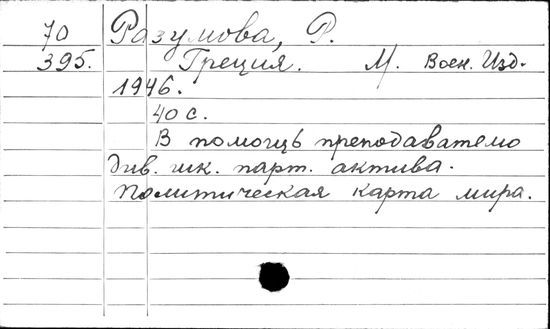 70 Разумова, Р.
395. Греция. М. Воен. Изд.
1946.
40 с.
В помощь преподавателю
див. шк. парт. актива.
Политическая карта мира.